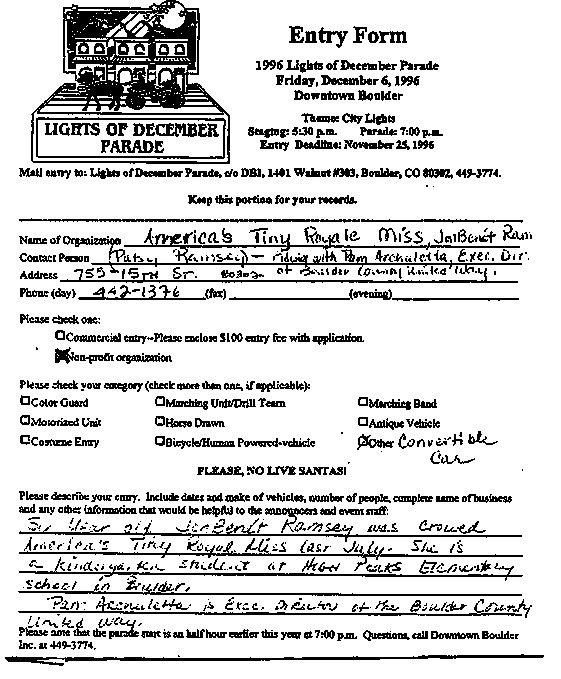 LIGHTS OF DECEMBER
PARADE
Entry Form
1996 Lights of December Parade
Friday, December 6, 1996
Downtown Boulder
Theme: City Lights
Staging: 5:30 p.m. Parade: 7:00 p.m.
Entry Deadline: November 25, 1996
Mail entry to: Lights of December Parade, c/o DBI, 1401 Walnut #303, Boulder, CO 80302, 449-3774.
Keep this portion for your records.
Name of Organization America's Tiny Royale Miss, JonBenét Ram
Contact Person (Patsy Ramsey) – riding with Pam Archuletta, Exec. Dir.
Address 755-15th St. 80302 of Boulder County United Way.
Phone (day) 442-1376 (fax) (evening)
Please check one:
Commercial entry--Please enclose $100 entry fee with application.
Non-profit organization
Please check your category (check more than one, if applicable):
Color Guard Marching Unit/Drill Team Marching Band
Motorized Unit Horse Drawn Antique Vehicle
Costume Entry Bicycle/Human Powered-vehicle Other Convertible
Car
PLEASE, NO LIVE SANTAS!
Please describe your entry. Include dates and make of vehicles, number of people, complete name of business
and any other information that would be helpful to the announcers and event staff:
Six Year old JonBenét Ramsey was crowed
America's Tiny Royal Miss last July. She is
a kindergarten student at High Peaks Elementary
school in Boulder.
Pam Archuletta is Exec. Director of the Boulder County
United Way.
Please note that the parade start is an half hour earlier this year at 7:00 p.m. Questions, call Downtown Boulder
Inc. at 449-3774.